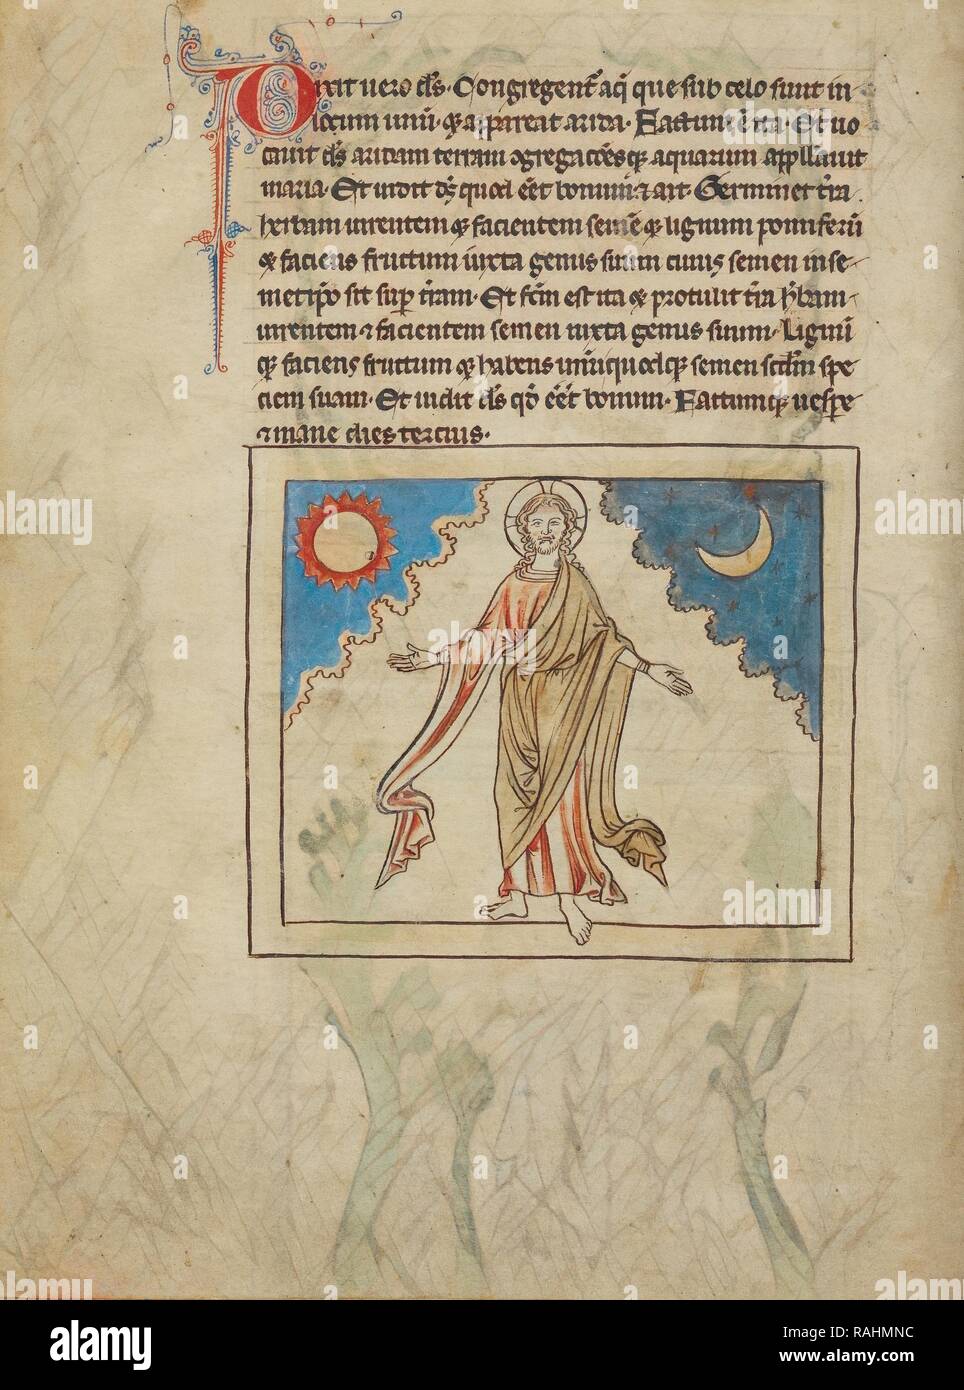 Dixit uero d̅s · Congregent᷑ aq̅ que sub celo sunt in
locum unu̅ · ⁊ appareat arida · Factum e̅ ita · Et uo
cauit d̅s aridam terram ᴐgregac̅o̅es qꝫ aquarum appllauit
maria · Et uidit d̅s quod e̅et bonum ⁊ ait · Germinet t̅ra
herbam uirentem ⁊ facientem seme̅ ⁊ lignum pomiferu̅
⁊ faciens fructum iuxta genus suum cuius semen in se
metip̅o sit sup t̅ram · Et fc̅m est ita ⁊ protulit t̅ra h̅bam
uirentem ⁊ facientem semen iuxta genus suum · Lignu̅
qꝫ faciens fructum ⁊ habens unu̅quodqꝫ semen scd̅m spe
ciem suam · Et uidit d̅s qd̅ e̅et bonum · Factumqꝫ uespe
⁊ mane dies tercius ·
alamy
a
alamy
Image ID: RAHMNC
www.alamy.com